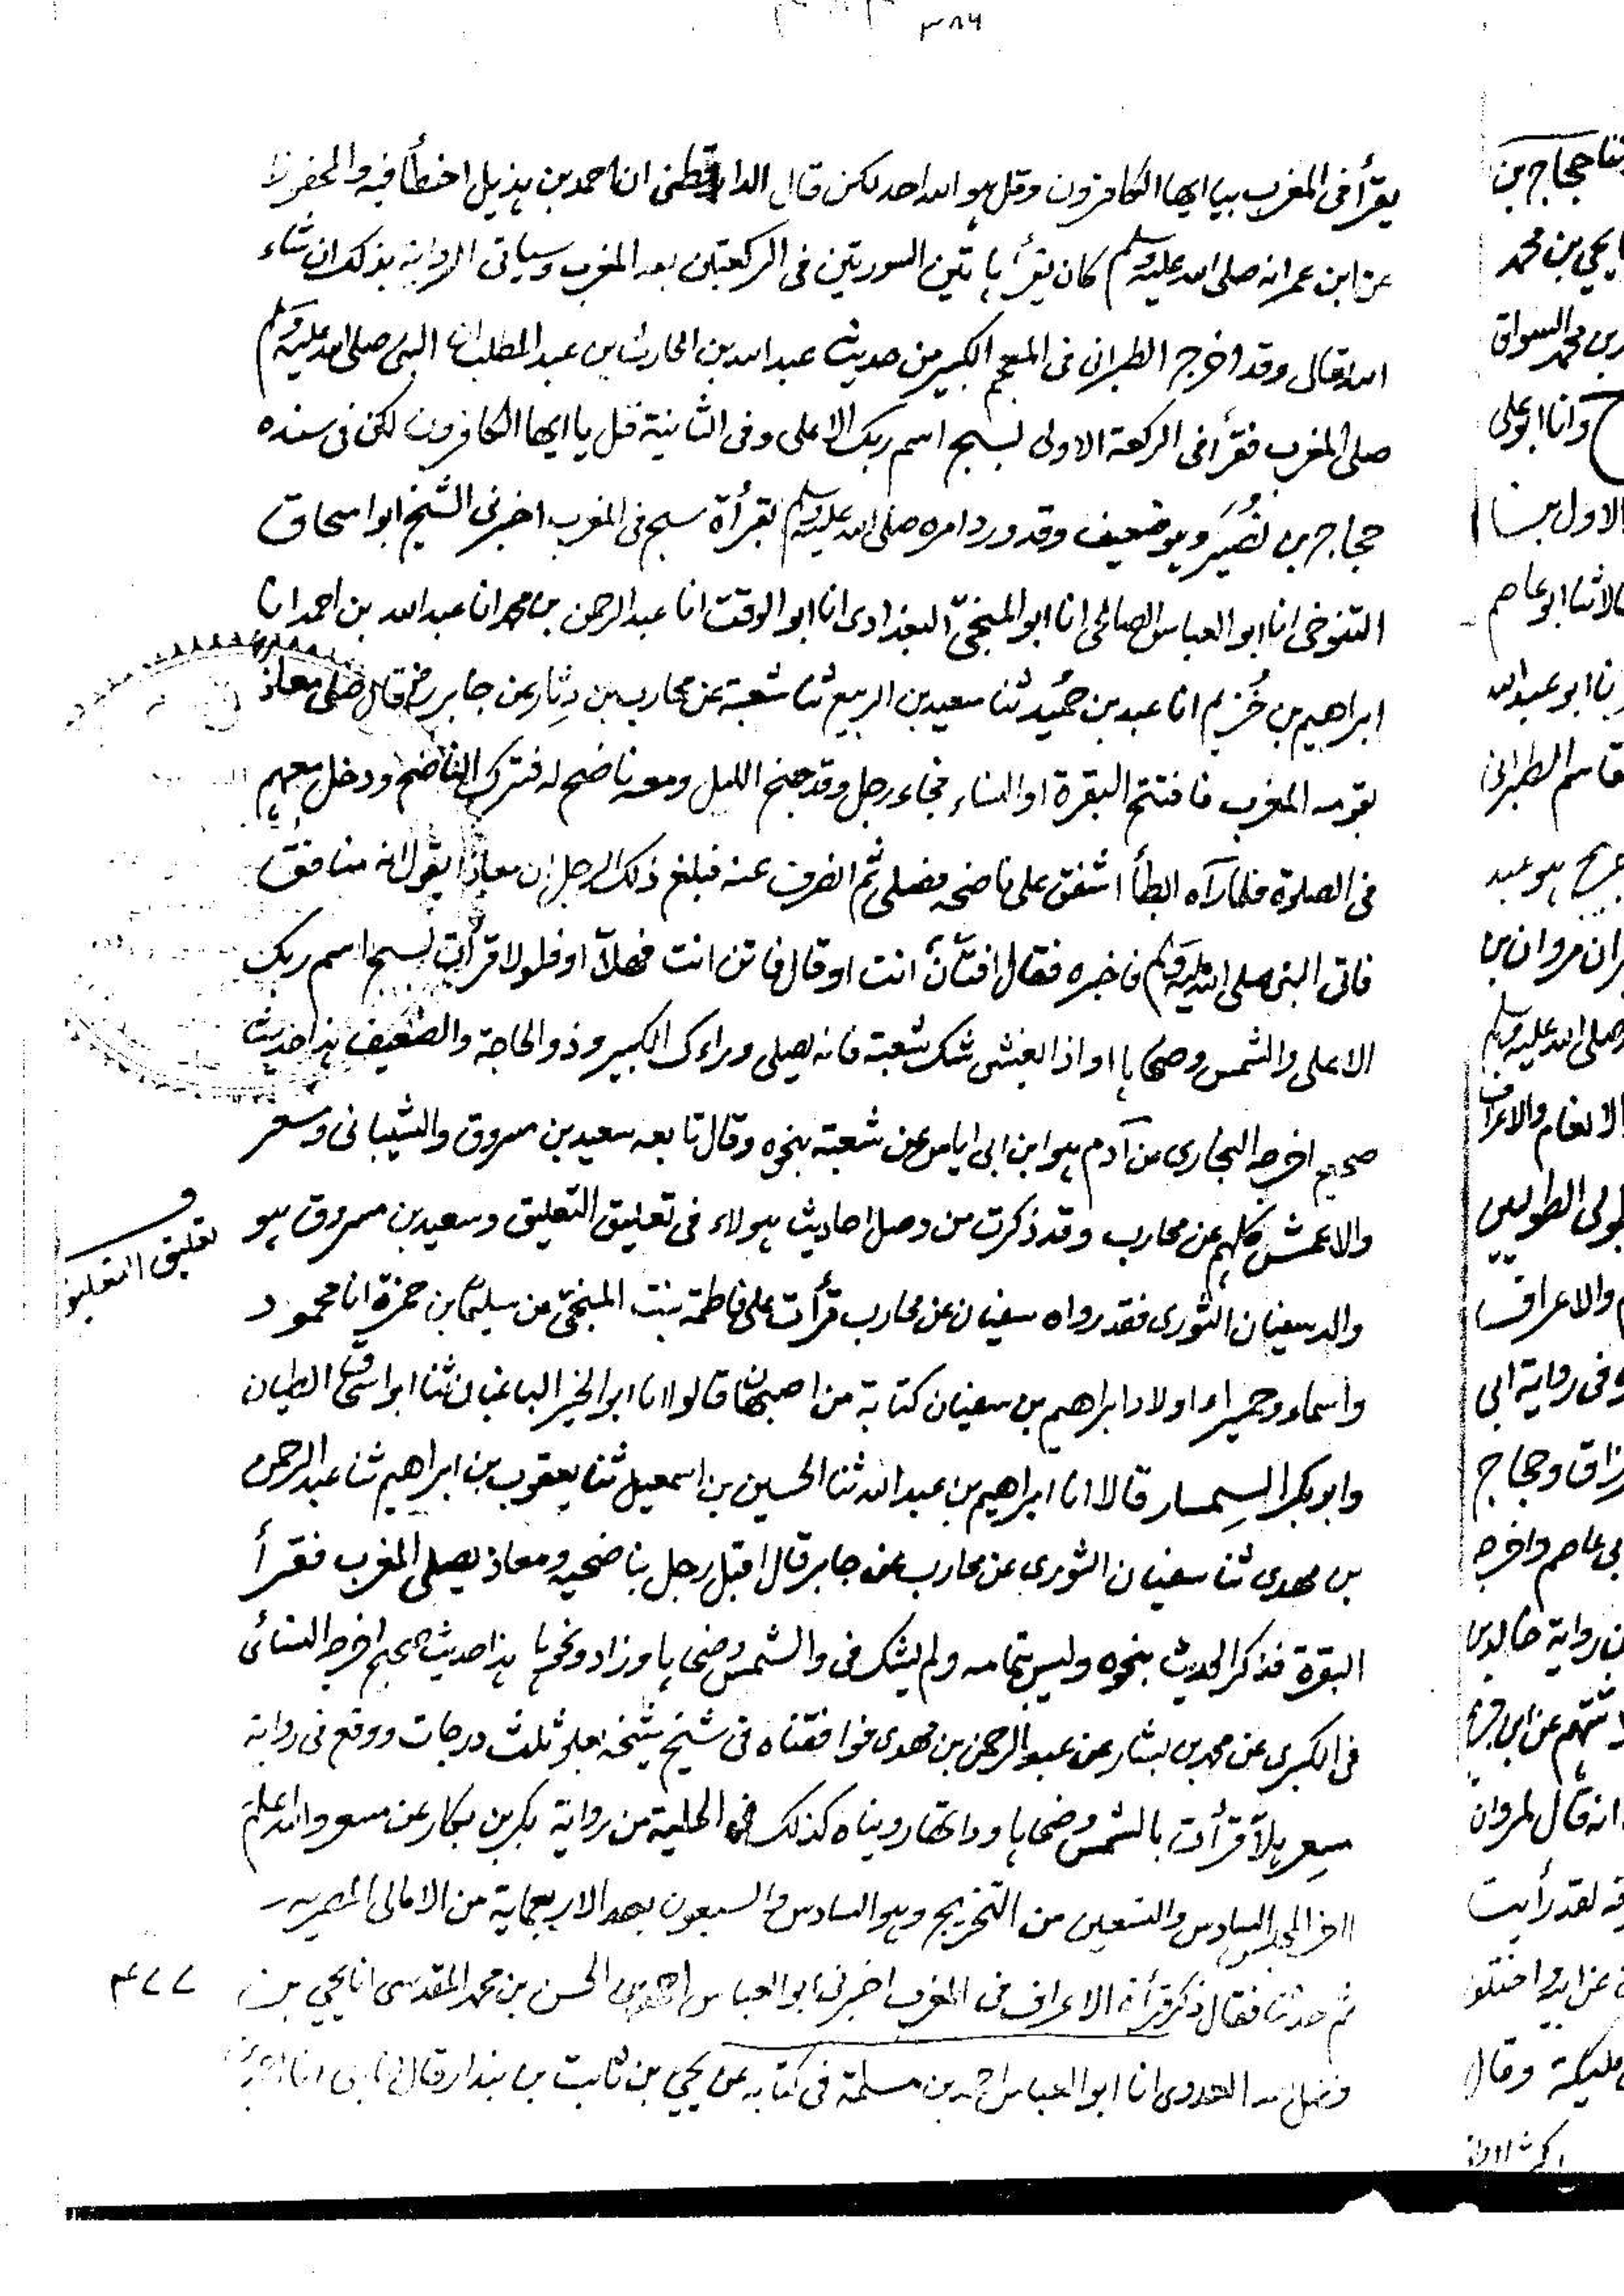 ٣٨٦
يقرأ في المغرب بيا ايها الكافرون وقل هو الله احد لكن قال الدارقطني ان احمد بن بذيل اخطأ فيه والمحفوظ
عن ابن عمر انه صلى الله عليه وسلم كان يقرأ بهاتين السورتين في الركعتين بعد المغرب وسياتي الرواية بذلك ان شاء
الله تعالى وقد اخرج الطبراني في المعجم الكبير من حديث عبد الله بن الحارث بن عبد المطلب ان النبي صلى الله عليه وسلم
صلى المغرب فقرأ في الركعة الاولى بسبح اسم ربك الاعلى وفي الثانية قل يا ايها الكافرون لكن في سنده
حجاج بن نُصَيْر وهو ضعيف وقد ورد امره صلى الله عليه وسلم بقرأة سبح في المغرب اخبرني الشيخ ابو اسحاق
التنوخي انا ابو العباس الصالحي انا ابو المنجى البغدادي انا ابو الوقت انا عبد الرحمن بن محمد انا عبد الله بن احمد انا
ابراهيم بن خُزيم انا عبد بن حُميد ثنا سعيد بن الربيع ثنا شعبة عن محارب بن دِثار عن جابر رض قال صلى معاذ
بقومه المغرب فافتتح البقرة او النساء فجاء رجل وقد جنح الليل ومعه ناضح له فترك الناضح ودخل معهم
في الصلوة فلما رآه ابطأ اشفق على ناضحه فصلى ثم انصرف عنه فبلغ ذلك الرجل ان معاذا يقول انه منافق
فاتى النبي صلى الله عليه وسلم فاخبره فقال افتّانٌ انت او قال فاتن انت فهلّا او فلولا قرأت بسبح اسم ربك
الاعلى والشمس وضحاها او اذا يغشى شك شعبة فانه يصلي وراءك الكبير وذو الحاجة والضعيف هذا حديث
صحيح اخرجه البخاري عن آدم هو ابن ابي اياس عن شعبة بنحوه وقال تابعه سعيد بن مسروق والشيباني ومسعر
والاعمش كلهم عن محارب وقد ذكرت من وصل احاديث هولاء في تعليق التعليق وسعيد بن مسروق هو
تعليق التعليق
والد سفيان الثوري فقد رواه سفيان عن محارب قرأت على فاطمة بنت المنجى عن سليمان بن حمزة انا محمود
واسماء وحميراء اولاد ابراهيم بن سفيان كتابة من اصبهان قالوا انا ابو الخير الباغبان ثنا ابو اسحاق الطيان
وابو بكر السِمسار قالا انا ابراهيم بن عبد الله ثنا الحسين بن اسمعيل ثنا يعقوب بن ابراهيم ثنا عبد الرحمن
بن مهدي ثنا سفيان الثوري عن محارب عن جابر قال اقبل رجل بناضحيه ومعاذ يصلي المغرب فقرأ
البقرة فذكر الحديث بنحوه وليس بتمامه ولم يشك في والشمس وضحاها وزاد ونحوها هذا حديث صحيح اخرجه النسائي
في الكبرى عن محمد بن بشار عن عبد الرحمن بن مهدي فوافقناه في شيخ شيخه بعلو ثلث درجات ووقع في رواية
مسعر هلّا قرأت بالشمس وضحاها وذواتها رويناه كذلك في الحلية من رواية بكر بن بكار عن مسعر والله اعلم
اخر المجلس السادس والتسعين من التخريج وهو السادس والسبعون بعد الاربعماية من الامالي المصرية
ثم حدثنا فقال ذكر قرأة الاعراف في المغرب اخبرني ابو العباس احمد بن الحسن بن محمد المقدسي انا يحيى بن
٤٧٧
فضل الله العدوي انا ابو العباس احمد بن مسلمة في كتابه عن يحيى بن ثابت بن بندار قال انا ابي انا
حجاج بن
يحيى بن محمد
بن محمد السواق
ح وانا ابو علي
الاول بن
ثنا ابو عاصم
انا ابو عبد الله
القاسم الطبراني
هو عبد
ان مروان بن
صلى الله عليه وسلم
الانعام والاعراف
طولى الطوليين
والاعراف
وفي رواية ابي
رزاق وحجاج
ابي عاصم واخرجه
من رواية خالد بن
انه قال لمروان
لقد رأيت
مليكة وقال